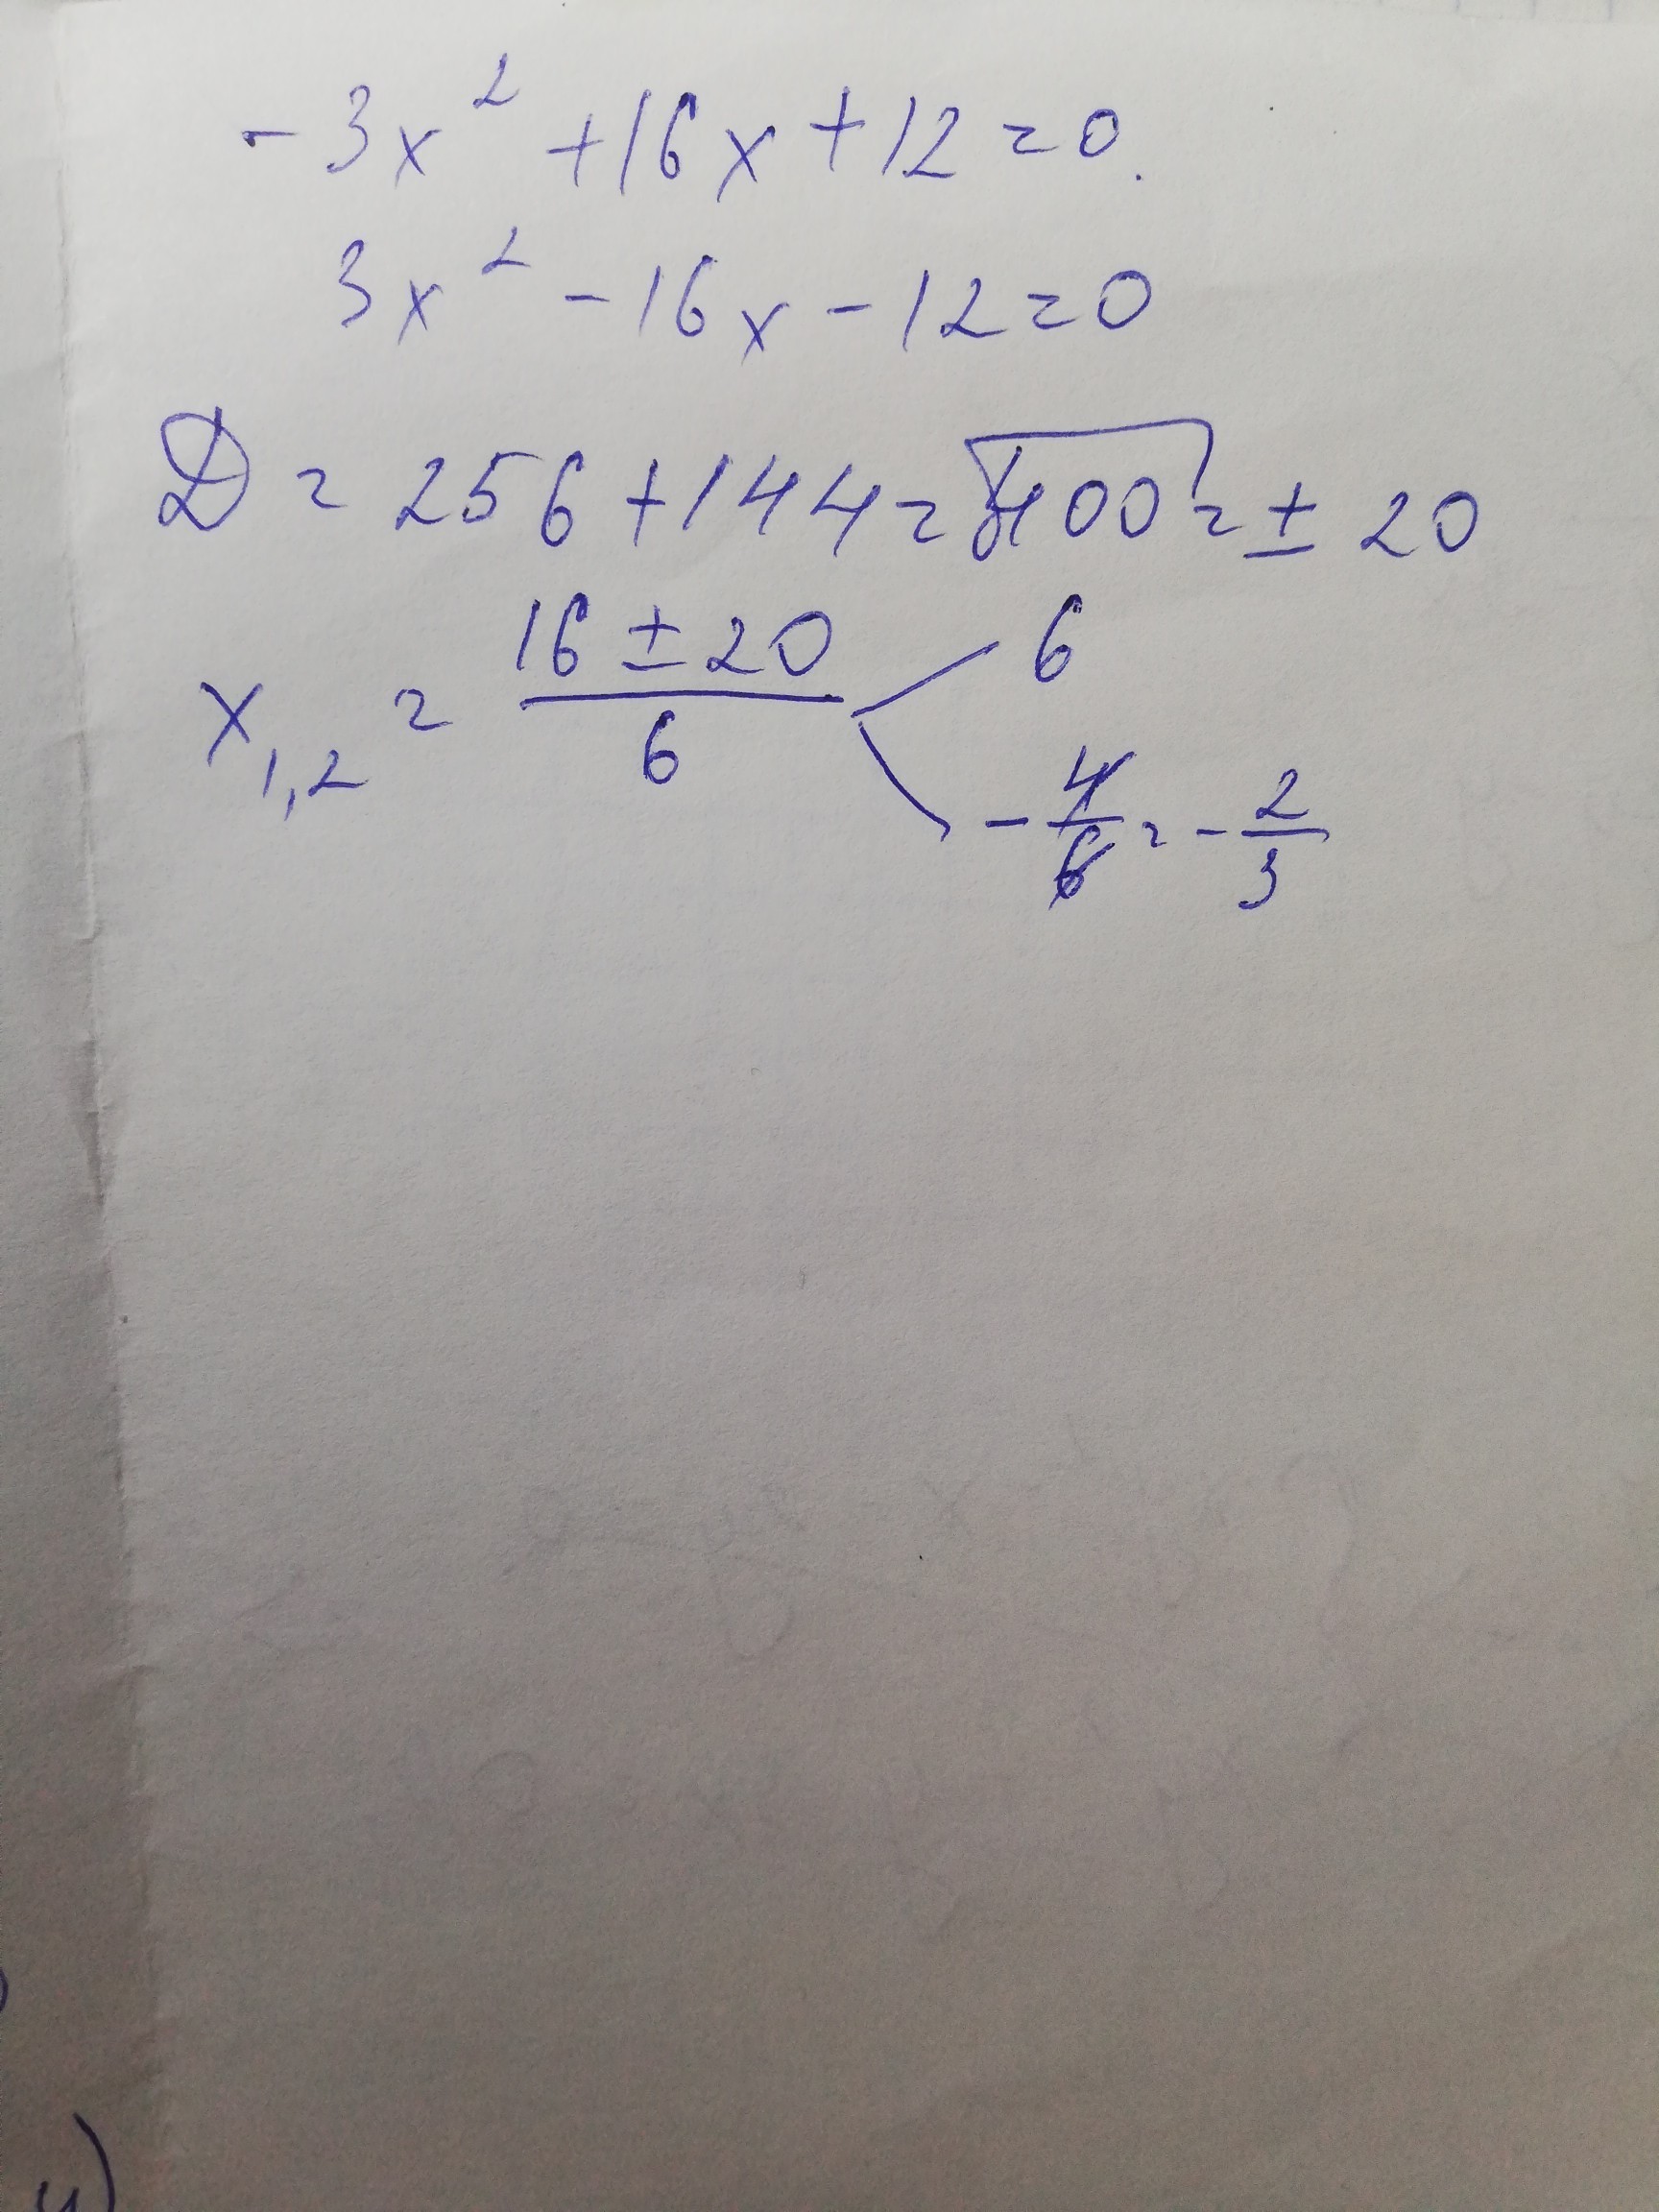 -3x² +16x +12 = 0.
3x² - 16x - 12 = 0
D = 256 + 144 = √400 = ± 20
x₁,₂ = (16 ± 20)/6 6
-4/6 = -2/3
4)